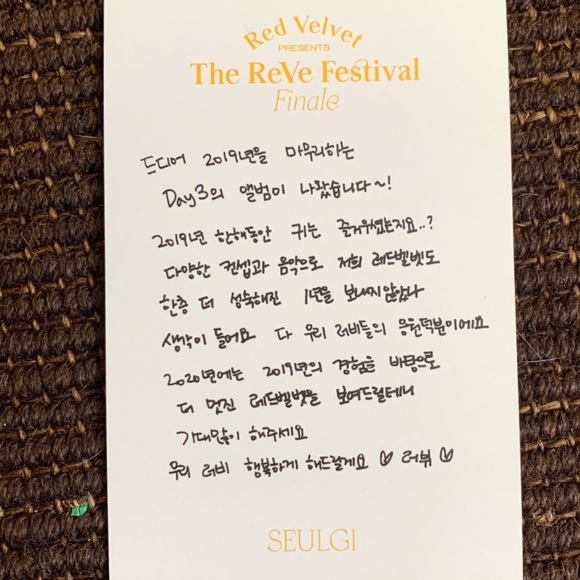 Red Velvet
PRESENTS
The ReVe Festival
Finale
드디어 2019년을 마무리하는
Day3의 앨범이 나왔습니다~!
2019년 한해동안 귀는 즐거우셨는지요..?
다양한 컨셉과 음악으로 저희 레드벨벳도
한층 더 성숙해진 1년을 보내지않았나
생각이 들어요 다 우리 러비들의 응원덕분이에요
2020년에는 2019년의 경험을 바탕으로
더 멋진 레드벨벳을 보여드릴테니
기대많이 해주세요
우리 러비 행복하게 해드릴게요 ♡ 러뷰 ♡
SEULGI